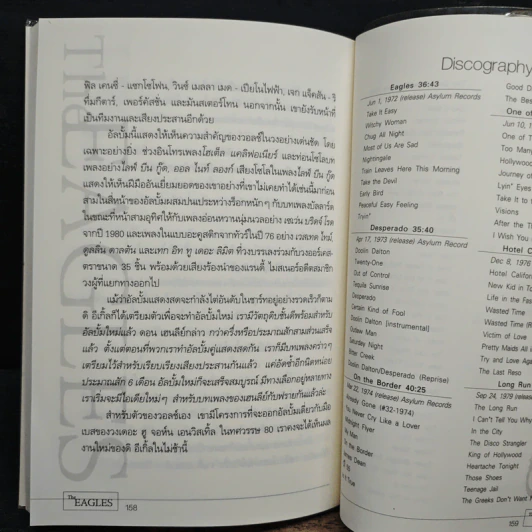 The EAGLES
ฟิล เคนซี - แซกโซโฟน, วินซ์ เมลลา เมด - เปียโนไฟฟ้า, เจก แจ็คสัน - จิ
ทีมกีตาร์, เพอร์คัสชั่น และมันสเตอร์โทน นอกจากนั้น เขายังรับหน้าที่
เป็นทีมงานและเสียงประสานอีกด้วย
อัลบั้มนี้แสดงให้เห็นความสำคัญของวอลช์ในวงอย่างเด่นชัด โดย
เฉพาะอย่างยิ่ง ช่วงอินโทรเพลงโฮเต็ล แคลิฟอเนียร์ และท่อนโซโลบท
เพลงอย่างไลฟ์ บีน กู๊ด, ออล ไนท์ ลองก์ เสียงโซโลในเพลงไลฟ์ บีน กู๊ด
แสดงให้เห็นฝีมืออันเยี่ยมยอดของเขาอย่างที่เขาไม่เคยทำได้เช่นนี้มาก่อน
สามในสี่หน้าของอัลบั้มผสมปนเประหว่างร็อกหนักๆ กับบทเพลงบัลลาด
ในขณะที่หน้าสามอุทิศให้กับเพลงอ่อนหวานนุ่มนวลอย่าง เซเว่น บริดจ์ โรด
จากปี 1980 และเพลงในแบบอะคูสติกจากทัวร์ในปี 76 อย่าง เวสเทด ไทม์,
ดูลลิน ดาลตัน และเทก อิท ทู เดอะ ลิมิต ที่วงบรรเลงร่วมกับวงออร์เคส
ตราขนาด 35 ชิ้น พร้อมด้วยเสียงร้องนำของแรนดี้ ไมสเนอร์อดีตสมาชิก
วงผู้ที่แยกทางออกไป
แม้ว่าอัลบั้มแสดงสดจะกำลังไต่อันดับในชาร์ทอยู่อย่างรวดเร็วก็ตาม
ดิ อีเกิ้ลก็ได้เตรียมตัวเพื่อจะทำอัลบั้มใหม่ เรามีวัตถุดิบชั้นดีพร้อมสำหรับ
อัลบั้มใหม่แล้ว ดอน เฮนลีย์กล่าว กว่าครึ่งหรือประมาณสักสามส่วนเสร็จ
แล้ว ตั้งแต่ตอนที่พวกเราทำอัลบั้มคู่แสดงสดกัน เราก็มีบทเพลงคร่าวๆ
เตรียมไว้สำหรับเรียบเรียงเสียงประสานกันแล้ว แต่อืดช้าอีกนิดหน่อย
ประมาณสัก 6 เดือน อัลบั้มใหม่ก็จะเสร็จสมบูรณ์ มีทางเลือกอยู่หลายทาง
เราเริ่มจะมีไอเดียใหม่ๆ สำหรับบทเพลงของเฮนลีย์กับฟรายกันแล้วล่ะ
สำหรับตัวของวอลช์เอง เขามีโครงการที่จะออกอัลบั้มเดี่ยวกับมือ
เบสของวงเดอะ ฮู จอห์น เอนวิสเทิ้ล ในทศวรรษ 80 เราคงจะได้เห็นผล
งานใหม่ของดิ อีเกิ้ลในไม่ช้านี้
The EAGLES
158
Discography
Eagles 36:43
Jun 1, 1972 (release) Asylum Records
Take It Easy
Witchy Woman
Chug All Night
Most of Us Are Sad
Nightingale
Train Leaves Here This Morning
Take the Devil
Early Bird
Peaceful Easy Feeling
Tryin'
Desperado 35:40
Apr 17, 1973 (release) Asylum Records
Doolin Dalton
Twenty-One
Out of Control
Tequila Sunrise
Desperado
Certain Kind of Fool
Doolin Dalton (Instrumental)
Outlaw Man
Saturday Night
Bitter Creek
Doolin Dalton/Desperado (Reprise)
On the Border 40:25
Mar 22, 1974 (release) Asylum Records
Already Gone (#32-1974)
You Never Cry Like a Lover
Midnight Flyer
My Man
On the Border
James Dean
Is True
Good D
The Best
One of
Jun 10, 1
One of T
Too Many
Hollywood
Journey of
Lyin' Eyes
Take It to
Visions
After the T
I Wish You
Hotel C
Dec 8, 1976
Hotel Califor
New Kid in To
Life in the Fas
Wasted Time
Wasted Time (R
Victim of Love
Pretty Maids All i
Try and Love Aga
The Last Reso
Long Run
Sep 24, 1979 (releas
The Long Run
I Can't Tell You Why
In the City
The Disco Strangler
King of Hollywood
Heartache Tonight
Those Shoes
Teenage Jail
The Greeks Don't Want
159